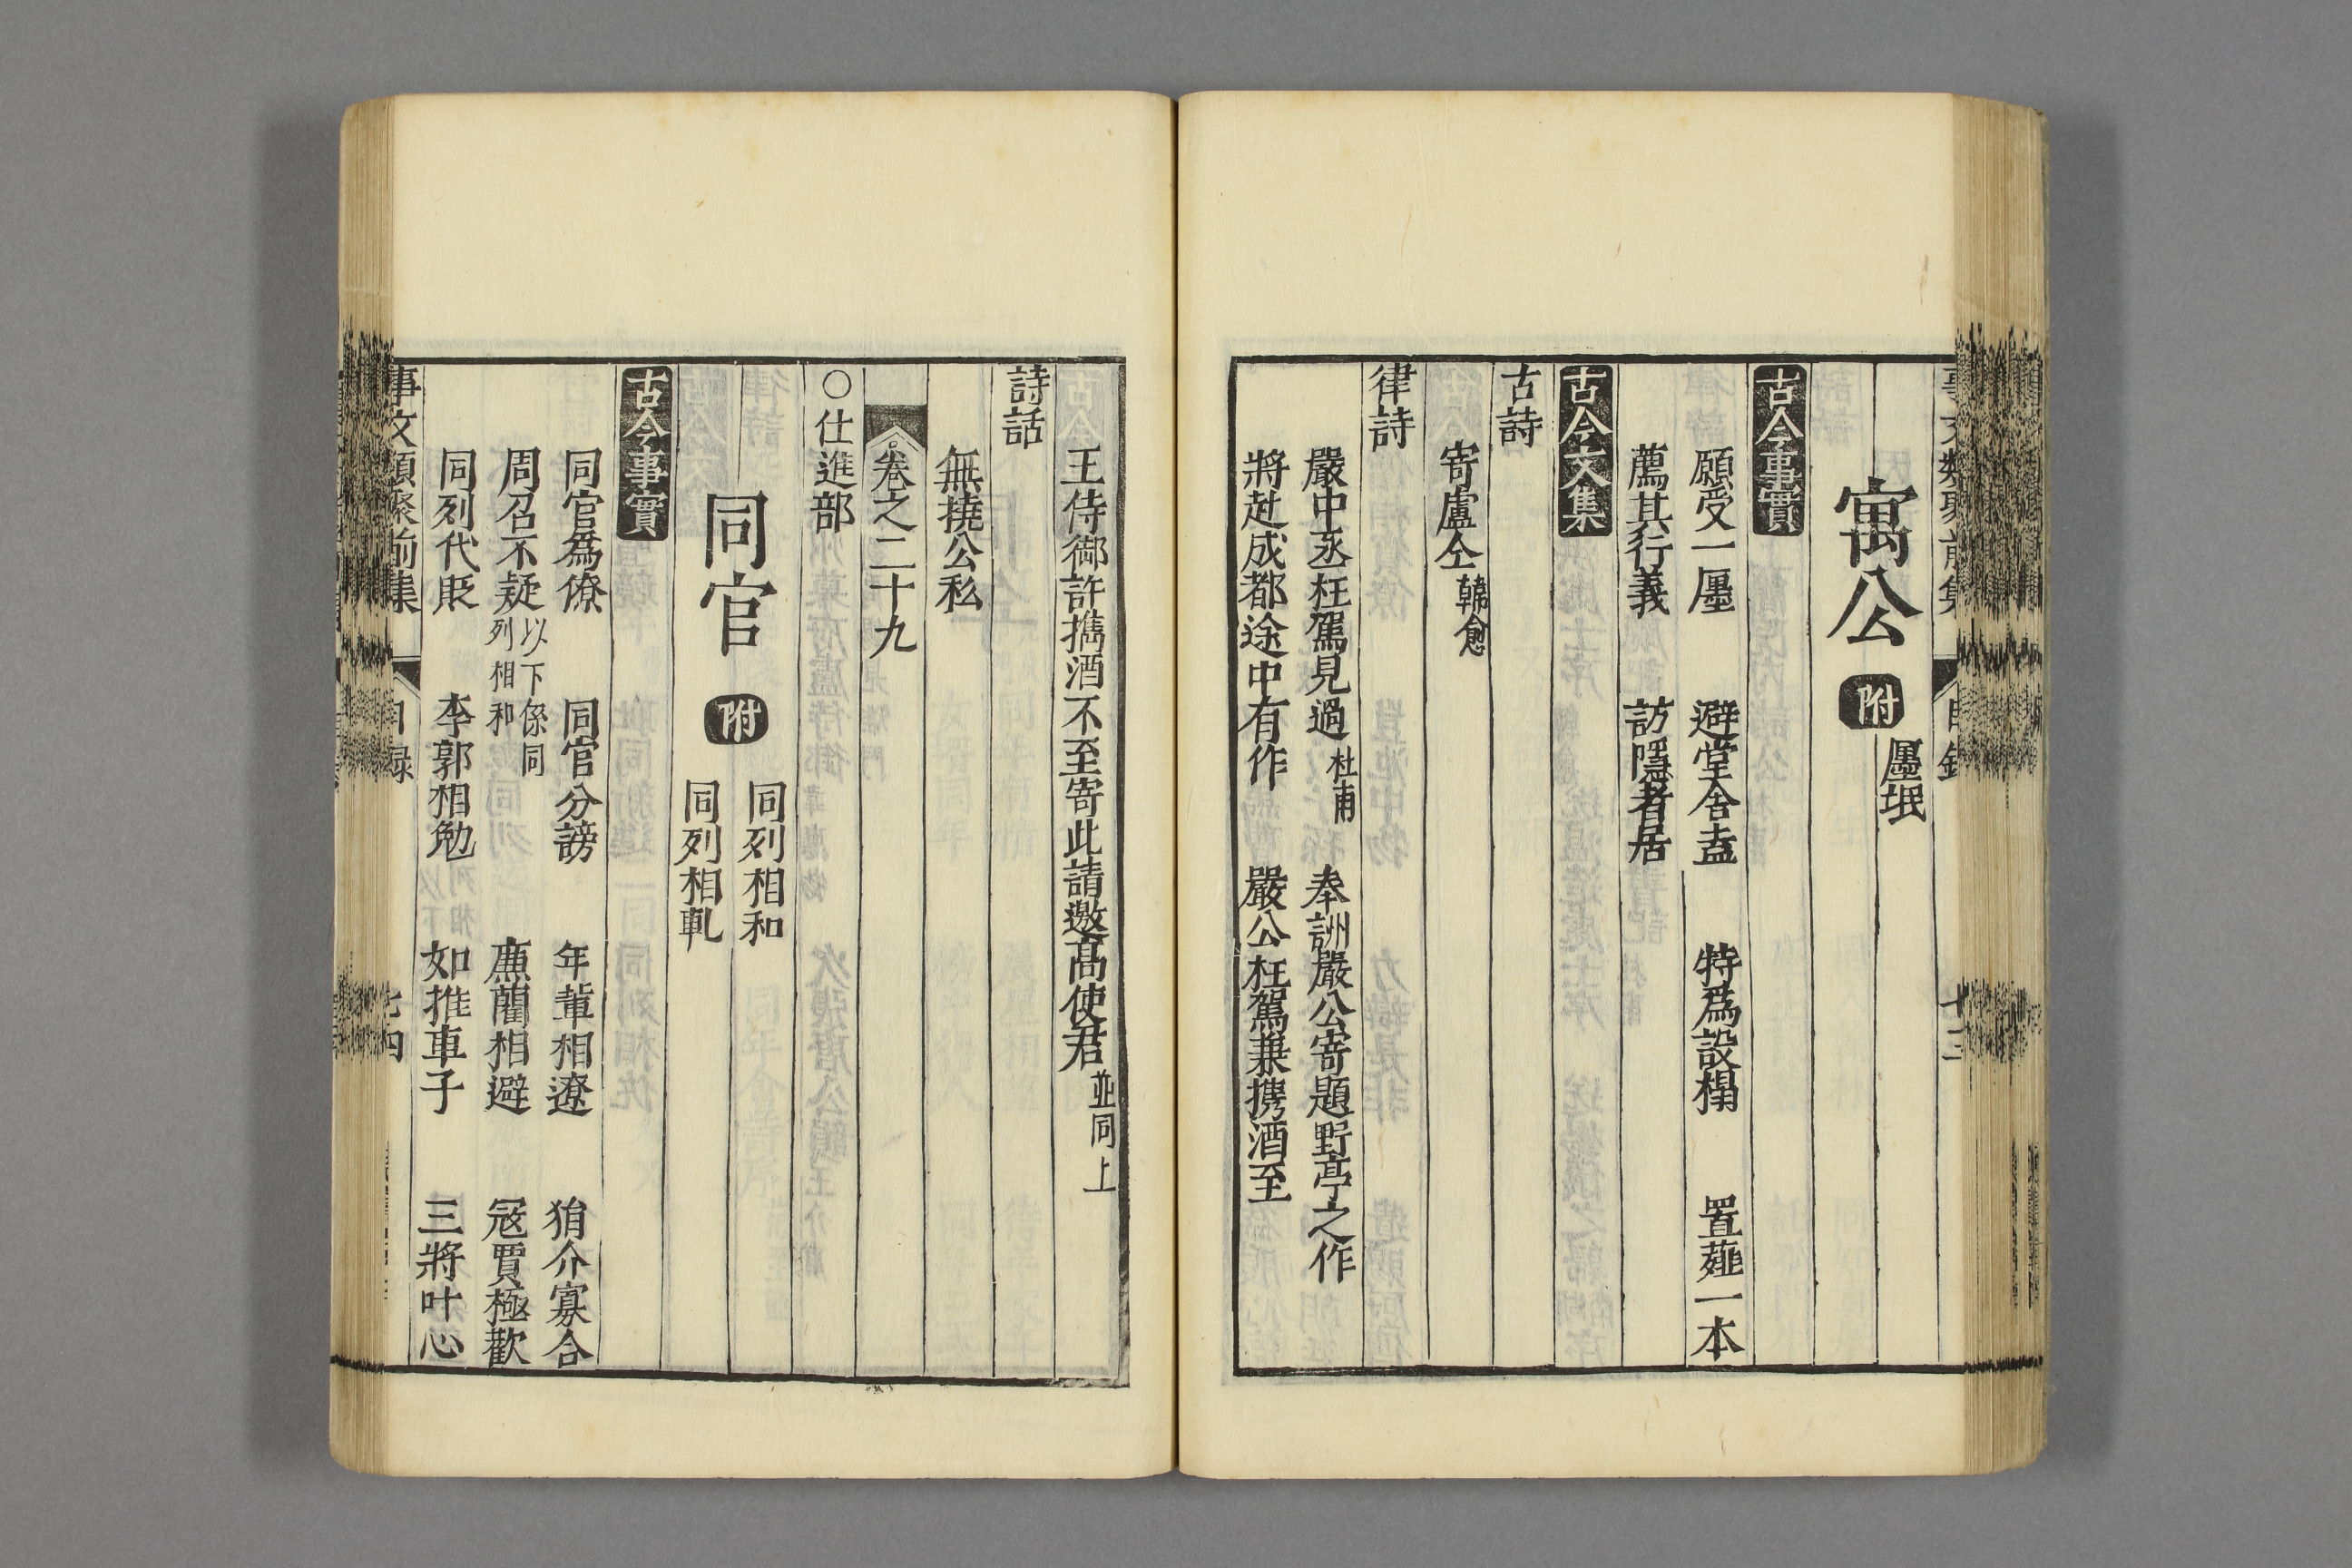 寓公 附 㕓垊
古今事實
願受一㕓 避堂舍盍 特爲設榻 置薤一本
薦其行義 訪隱者居
古今文集
古詩
寄盧仝 韓愈
律詩
嚴中丞枉駕見過 杜甫 奉詶嚴公寄題野亭之作
將赴成都途中有作 嚴公枉駕兼携酒至
王侍御許擕酒不至寄此請邀髙使君 並同上
詩話
無撓公私
卷之二十九
○仕進部
同列相和
同官 附
同列相軋
古今事實
同官爲僚 同官分謗 年軰相遼 狷介寡合
周召不疑 以下係同列相和 廉藺相避 宼賈極歡
同列代貶 李郭相勉 如推車子 三將叶心
事文類聚前集 目録 七四